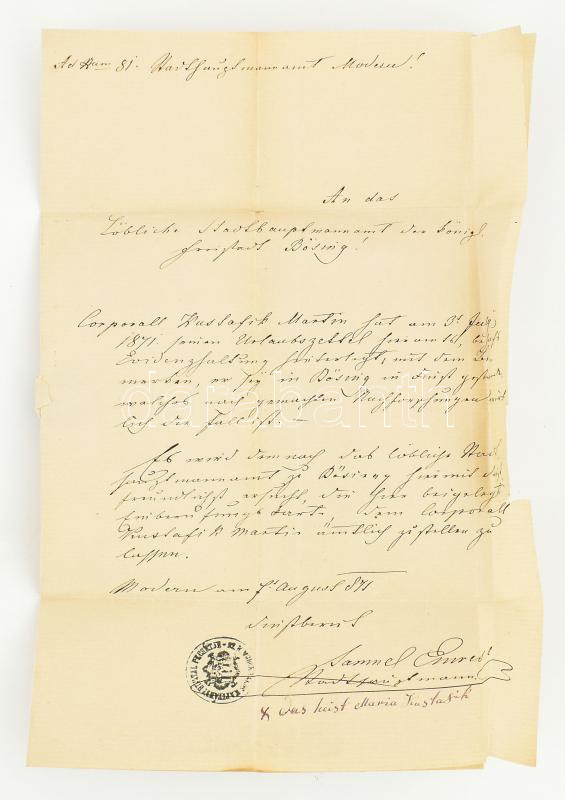 Ad Num 81. Stadthauptmannamt Modern!
An das
Löbliche Stadthauptmannamt der königl.
Freistadt Bösing!
Corporall Kustafik Martin hat am 3t
1871 seinen Urlaubszettel hieramts,
Evidenzhaltung hinterlegt, mit dem
merken, er sey in Bösing in Dienst
welches nach gemachten Nachforschungen
lich der Fall ist. —
Es wird demnach das löbliche Stad
hauptmannamt zu Bösing hiermit
freundlichst ersucht, die hier beigeleg
Einberufungs Karte, dem Corporall
Kustafik Martin ämtlich zustellen zu
lassen.
Modern am 7t August 871
Samuel Emresz
Stadthauptmann
X was heist Maria Kustafik
darabanth